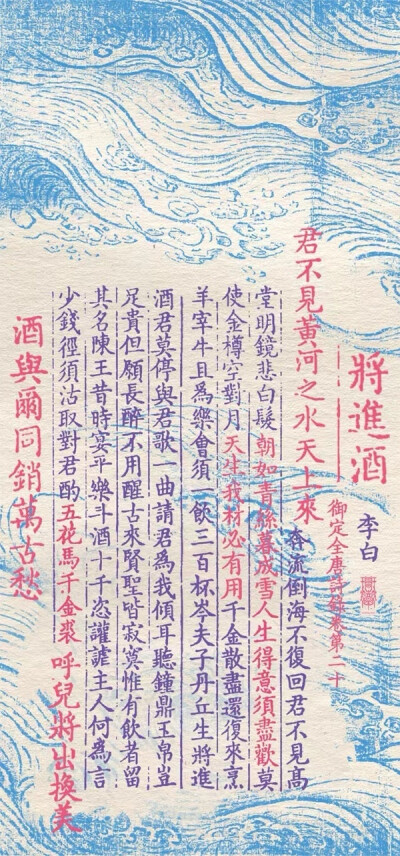 將進酒
李白
御定全唐詩錄卷第二十
君不見黃河之水天上來
奔流倒海不復回君不見高
堂明鏡悲白髮朝如青絲暮成雪人生得意須盡歡莫
使金樽空對月天生我材必有用千金散盡還復來烹
羊宰牛且為樂會須一飲三百杯岑夫子丹丘生將進
酒君莫停與君歌一曲請君為我傾耳聽鐘鼎玉帛豈
足貴但願長醉不用醒古來賢聖皆寂寞惟有飲者留
其名陳王昔時宴平樂斗酒十千恣讙謔主人何為言
少錢徑須沽取對君酌五花馬千金裘
呼兒將出換美
酒與爾同銷萬古愁